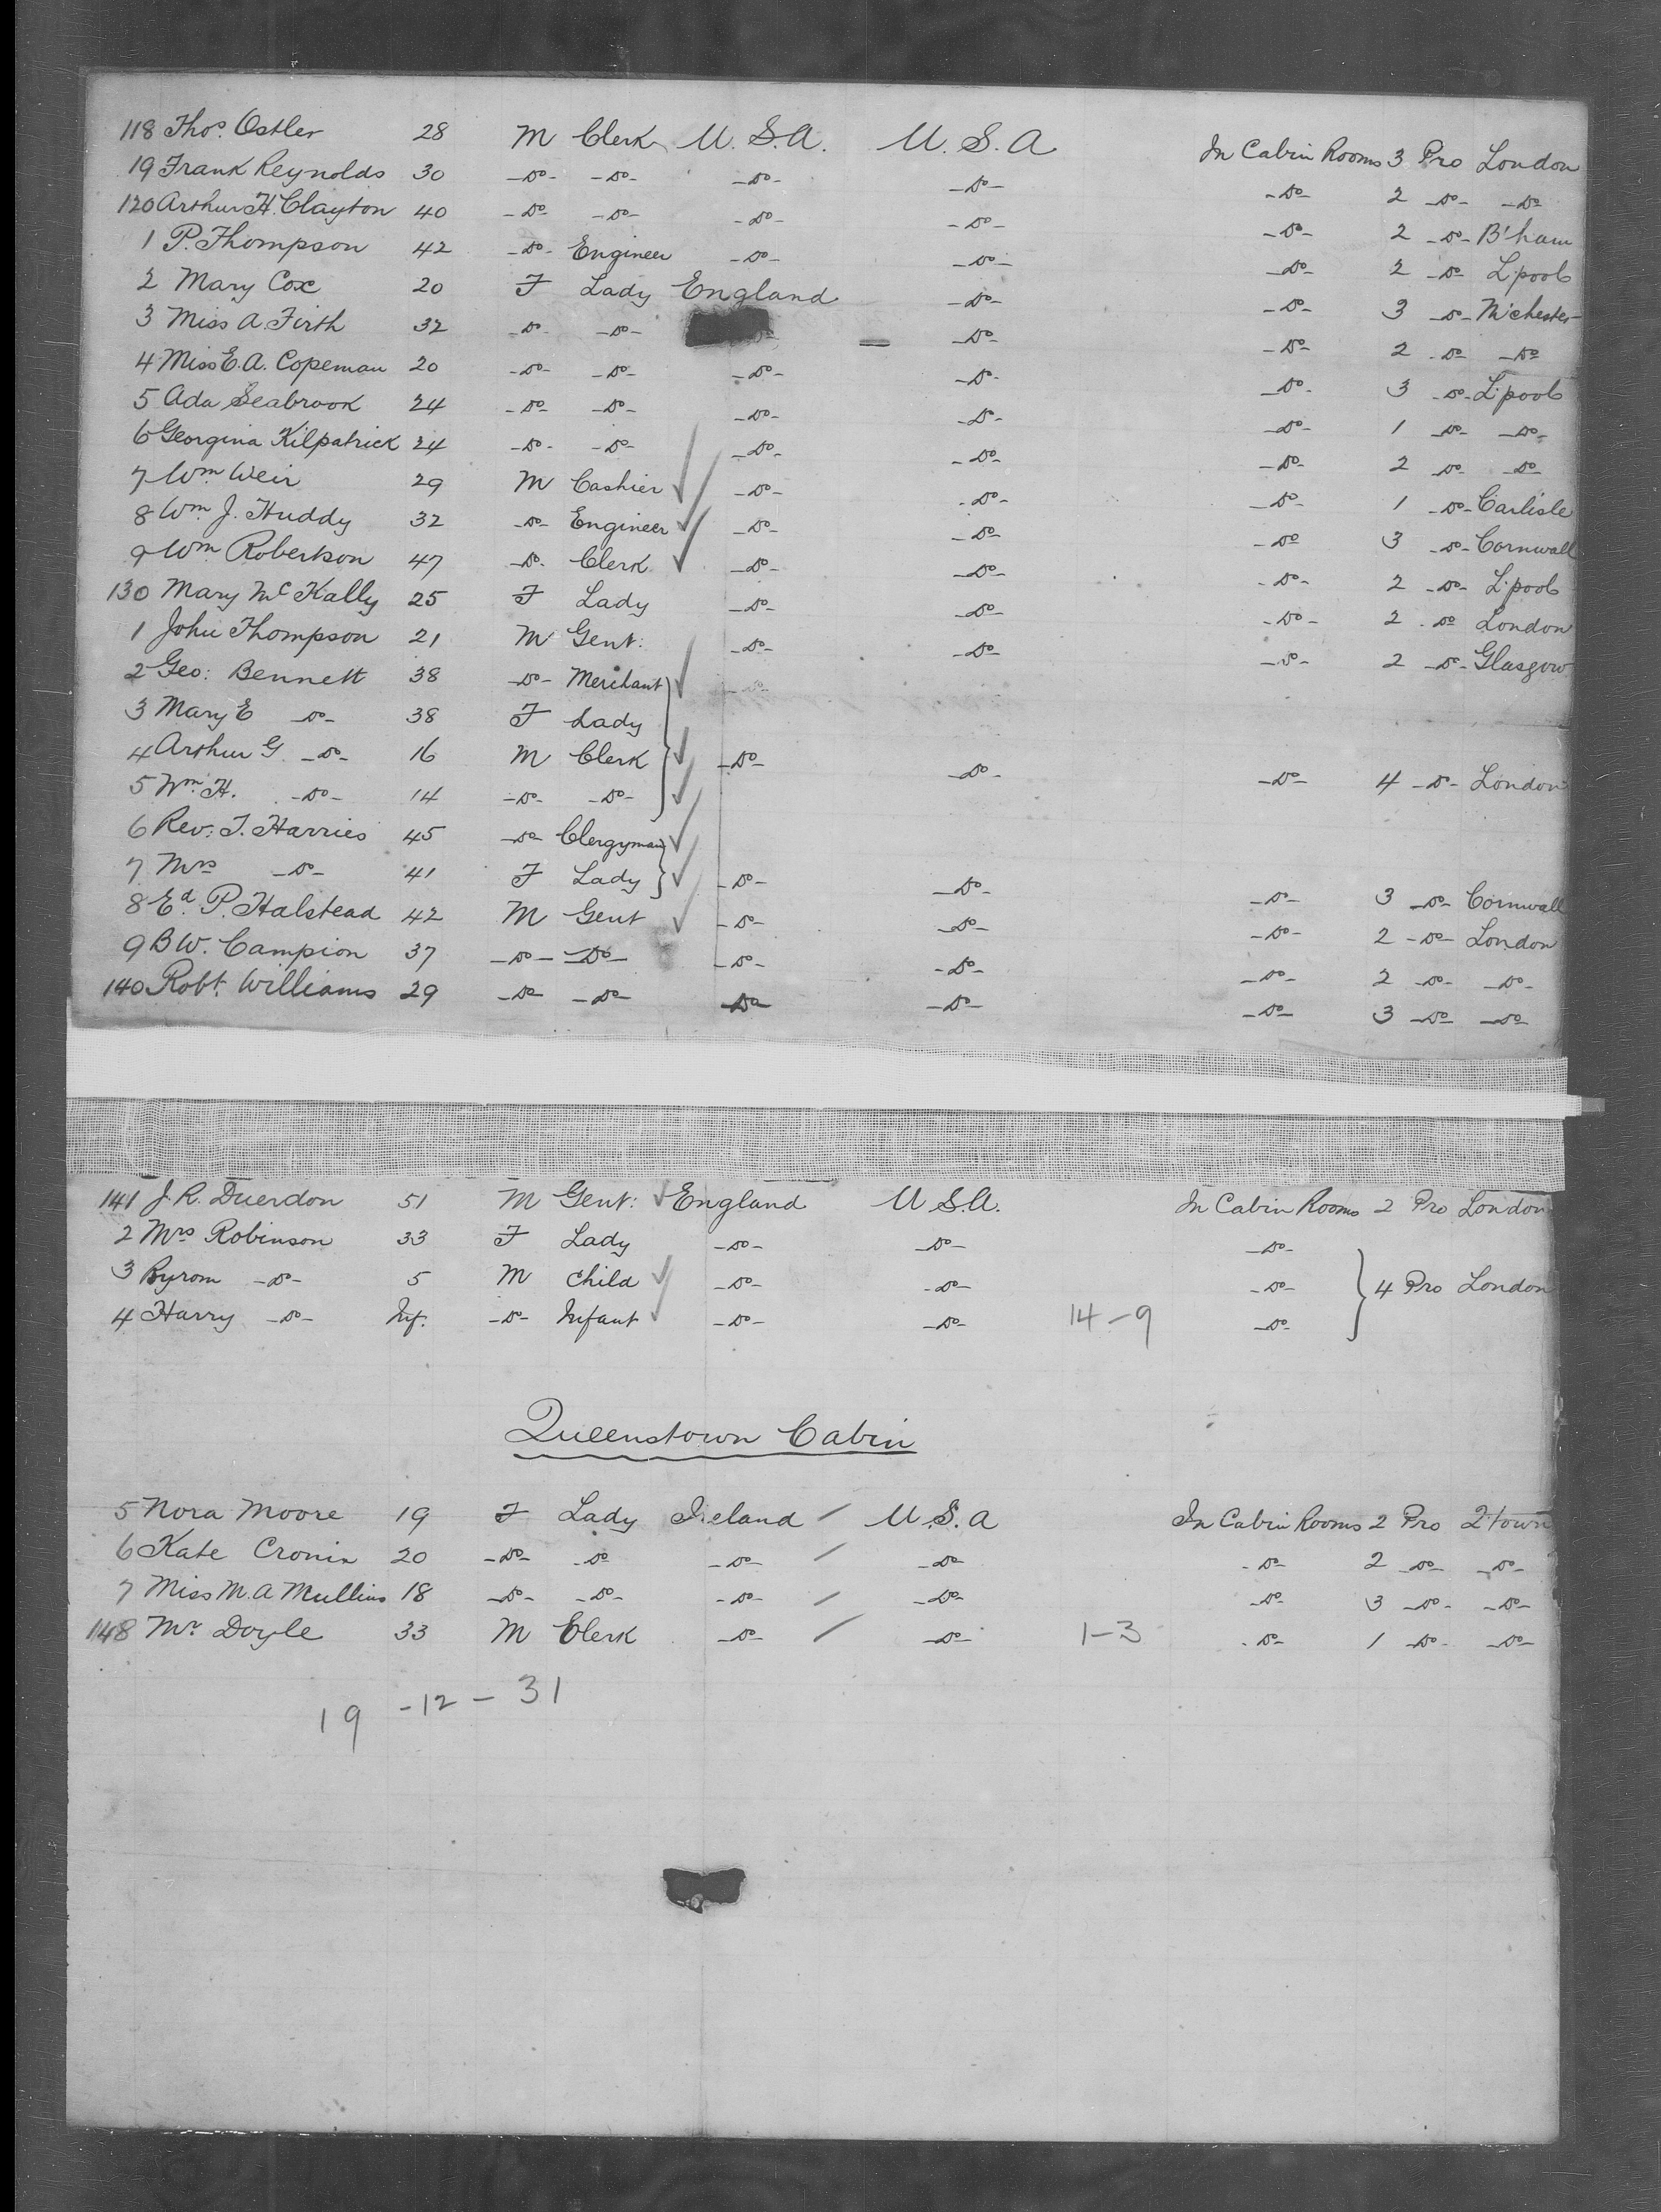 118 Thos. Ostler 28 M Clerk U.S.A. U.S.A In Cabin Rooms 3 Pro London
19 Frank Reynolds 30 -Do- -Do- -Do- -Do- -Do- 2 -Do- -Do-
120 Arthur H. Clayton 40 -Do- -Do- -Do- -Do- -Do- 2 -Do- B'ham
1 P. Thompson 42 -Do- Engineer -Do- -Do- -Do- 2 -Do- L'pool
2 Mary Cox 20 F Lady England -Do- -Do- 3 -Do- M'chester
3 Miss A. Firth 32 -Do- -Do- -Do- -Do- -Do- 2 -Do- -Do-
4 Miss E.A. Copeman 20 -Do- -Do- -Do- -Do- -Do- 3 -Do- L'pool
5 Ada Seabrook 24 -Do- -Do- -Do- -Do- -Do- 1 -Do- -Do-
6 Georgina Kilpatrick 24 -Do- -Do- -Do- -Do- -Do- 2 -Do- -Do-
7 Wm Weir 29 M Cashier -Do- -Do- -Do- 1 -Do- Carlisle
8 Wm J. Huddy 32 -Do- Engineer -Do- -Do- -Do- 3 -Do- Cornwall
9 Wm Robertson 47 -Do- Clerk -Do- -Do- -Do- 2 -Do- L'pool
130 Mary McKally 25 F Lady -Do- -Do- -Do- 2 -Do- London
1 John Thompson 21 M Gent: -Do- -Do- -Do- 2 -Do- Glasgow
2 Geo: Bennett 38 -Do- Merchant -Do-
3 Mary E -Do- 38 F Lady
4 Arthur G -Do- 16 M Clerk -Do- -Do- -Do- 4 -Do- London
5 Wm. H. -Do- 14 -Do- -Do-
6 Rev: T. Harries 45 -Do- Clergyman
7 Mrs -Do- 41 F Lady -Do- -Do- -Do- 3 -Do- Cornwall
8 Ed. P. Halstead 42 M Gent -Do- -Do- -Do- 2 -Do- London
9 B W. Campion 37 -Do- -Do- -Do- -Do- -Do- 2 -Do- -Do-
140 Robt. Williams 29 -Do- -Do- -Do- -Do- -Do- 3 -Do- -Do-
141 J.R. Duerdon 51 M Gent: England U.S.A. In Cabin Rooms 2 Pro London
2 Mrs Robinson 33 F Lady -Do- -Do- -Do-
3 Byrom -Do- 5 M Child -Do- -Do- -Do- 4 Pro London
4 Harry -Do- Inf. -Do- Infant -Do- -Do- 14-9 -Do-
Queenstown Cabin
5 Nora Moore 19 F Lady Ireland / U.S.A In Cabin Rooms 2 Pro Q'town
6 Kate Cronin 20 -Do- -Do- -Do- / -Do- -Do- 2 -Do- -Do-
7 Miss M.A Mullins 18 -Do- -Do- -Do- / -Do- -Do- 3 -Do- -Do-
148 Mr Doyle 33 M Clerk -Do- / -Do- 1-3 -Do- 1 -Do- -Do-
19 - 12 - 31